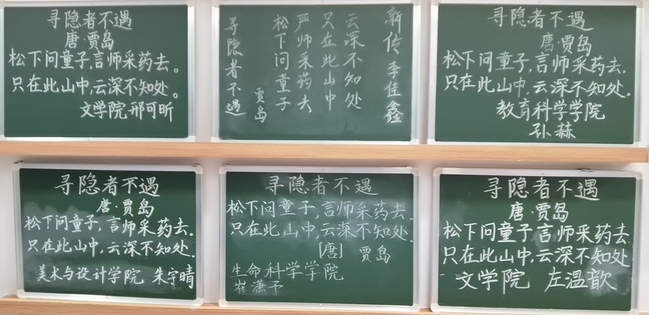 寻隐者不遇
唐·贾岛
松下问童子,言师采药去。
只在此山中,云深不知处。
文学院 邢可昕
寻隐者不遇
贾岛
松下问童子
严师采药去
只在此山中
云深不知处
新传 李佳鑫
寻隐者不遇
唐·贾岛
松下问童子,言师采药去.
只在此山中,云深不知处.
教育科学学院
孙赫
寻隐者不遇
唐·贾岛
松下问童子,言师采药去.
只在此山中,云深不知处.
美术与设计学院 朱宇晴
寻隐者不遇
松下问童子,言师采药去.
只在此山中,云深不知处.
[唐] 贾岛
生命科学学院
崔潇予
寻隐者不遇
唐·贾岛
松下问童子,言师采药去.
只在此山中,云深不知处
文学院 左温歆